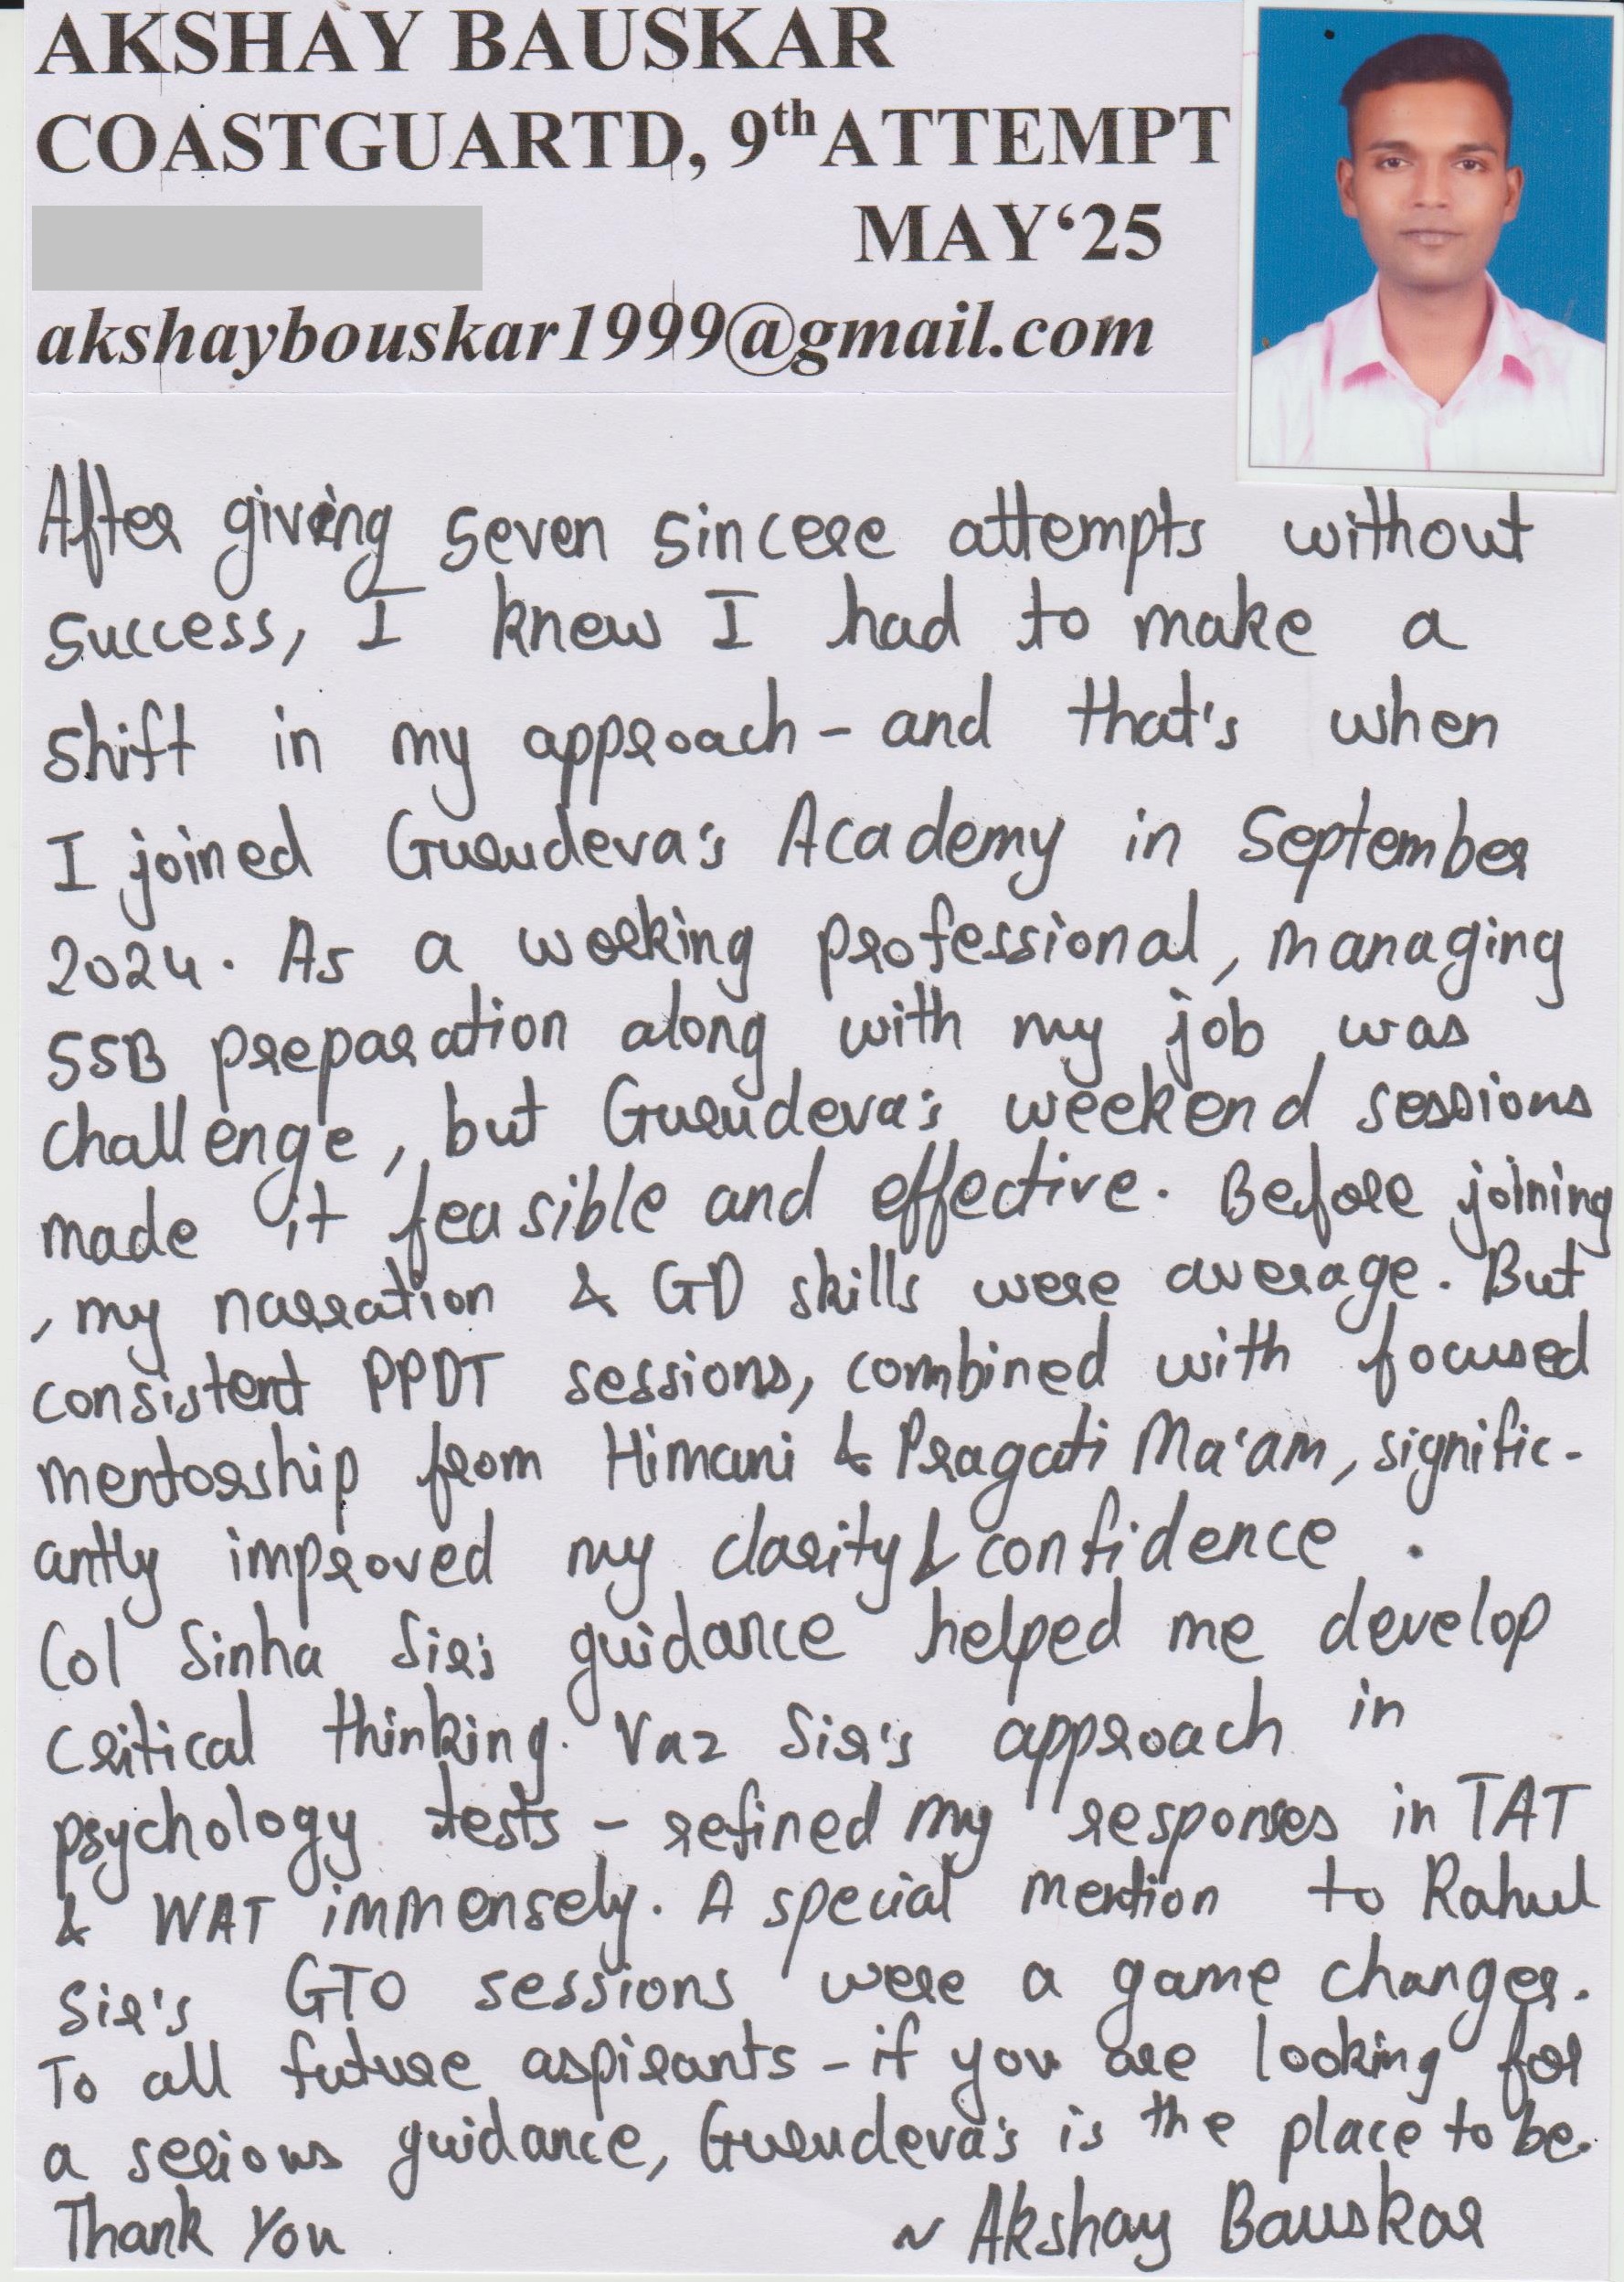 AKSHAY BAUSKAR
COASTGUARTD, 9th ATTEMPT
MAY‘25
akshaybouskar1999@gmail.com
After giving seven sincere attempts without
success, I knew I had to make a
shift in my approach - and that's when
I joined Gurudeva's Academy in September
2024. As a working professional, managing
SSB preparation along with my job was
challenge, but Gurudeva's weekend sessions
made it feasible and effective. Before joining
, my narration & GD skills were average. But
consistent PPDT sessions, combined with focused
mentorship from Himani & Pragati Ma'am, signific-
antly improved my clarity & confidence .
Col Sinha Sir's guidance helped me develop
critical thinking. Vaz Sir's approach in
psychology tests - refined my responses in TAT
& WAT immensely. A special mention to Rahul
Sir's GTO sessions were a game changer.
To all future aspirants - if you are looking for
a serious guidance, Gurudeva's is the place to be.
Thank You ~ Akshay Bauskar